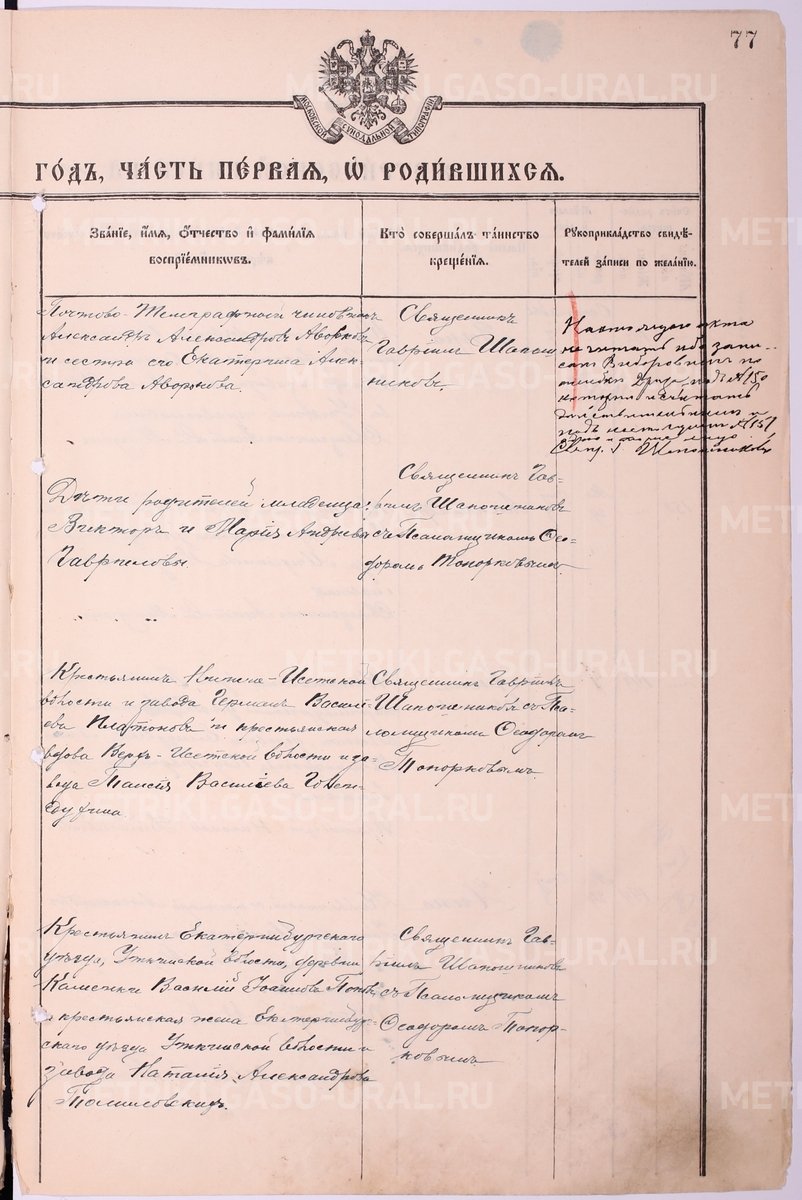 77
МОСКОВСКОЙ СѴНОДАЛЬНОЙ ТИПОГРАФІИ
ГО́ДЪ, ЧА́СТЬ ПЕ́РВАЯ, Ѡ РОДИ́ВШИХСЯ.
Зва́нїе, и́мя, ѻ́тчество и фами́лїя
воспрїе́мникѡвъ.
Кто̀ соверша́лъ та́инство
креще́нїя.
Рꙋкоприкла́дство свидѣ́-
телей за́писи по жела́нїю.
Почтово-Телеграфный чиновникъ
Александръ Александровъ
и сестра его Екатерина Алек-
сандрова
Священникъ
Гавріилъ Шапош
никовъ.
Настоящаго акта
не считать ибо запи-
санъ по
ошибкѣ № 150
который и считать
дѣйствительнымъ и
подъ № 151
Свящ. Г Шапошниковъ
Дѣти родителей младенца:
Викторъ и Марія Андреевы
Гавриловы
Священникъ Гав-
ріилъ Шапошниковъ
съ Псаломщикомъ Ѳео-
доромъ Топорковымъ
Крестьянинъ Нытво-Исетской
волости и завода Германъ Василь
евъ Платоновъ и крестьянская
вдова Верхъ-Исетской волости и за-
вода Таисія Васильева
Священникъ Гавріилъ
Шапошниковъ съ Пса-
ломщикомъ Ѳеодоромъ
Топорковымъ
Крестьянинъ Екатеринбургскаго
уѣзда, Уткинской волости, деревни
Каменки Василій Іоанновъ Поповъ
и крестьянская жена Екатеринбур-
скаго уѣзда Уткинской волости и
завода Наталія Александрова
Томиловскихъ.
Священникъ Гав-
ріилъ Шапошниковъ
съ Псаломщикомъ
Ѳеодоромъ Топор-
ковымъ
METRIKI.GASO-URAL.RU